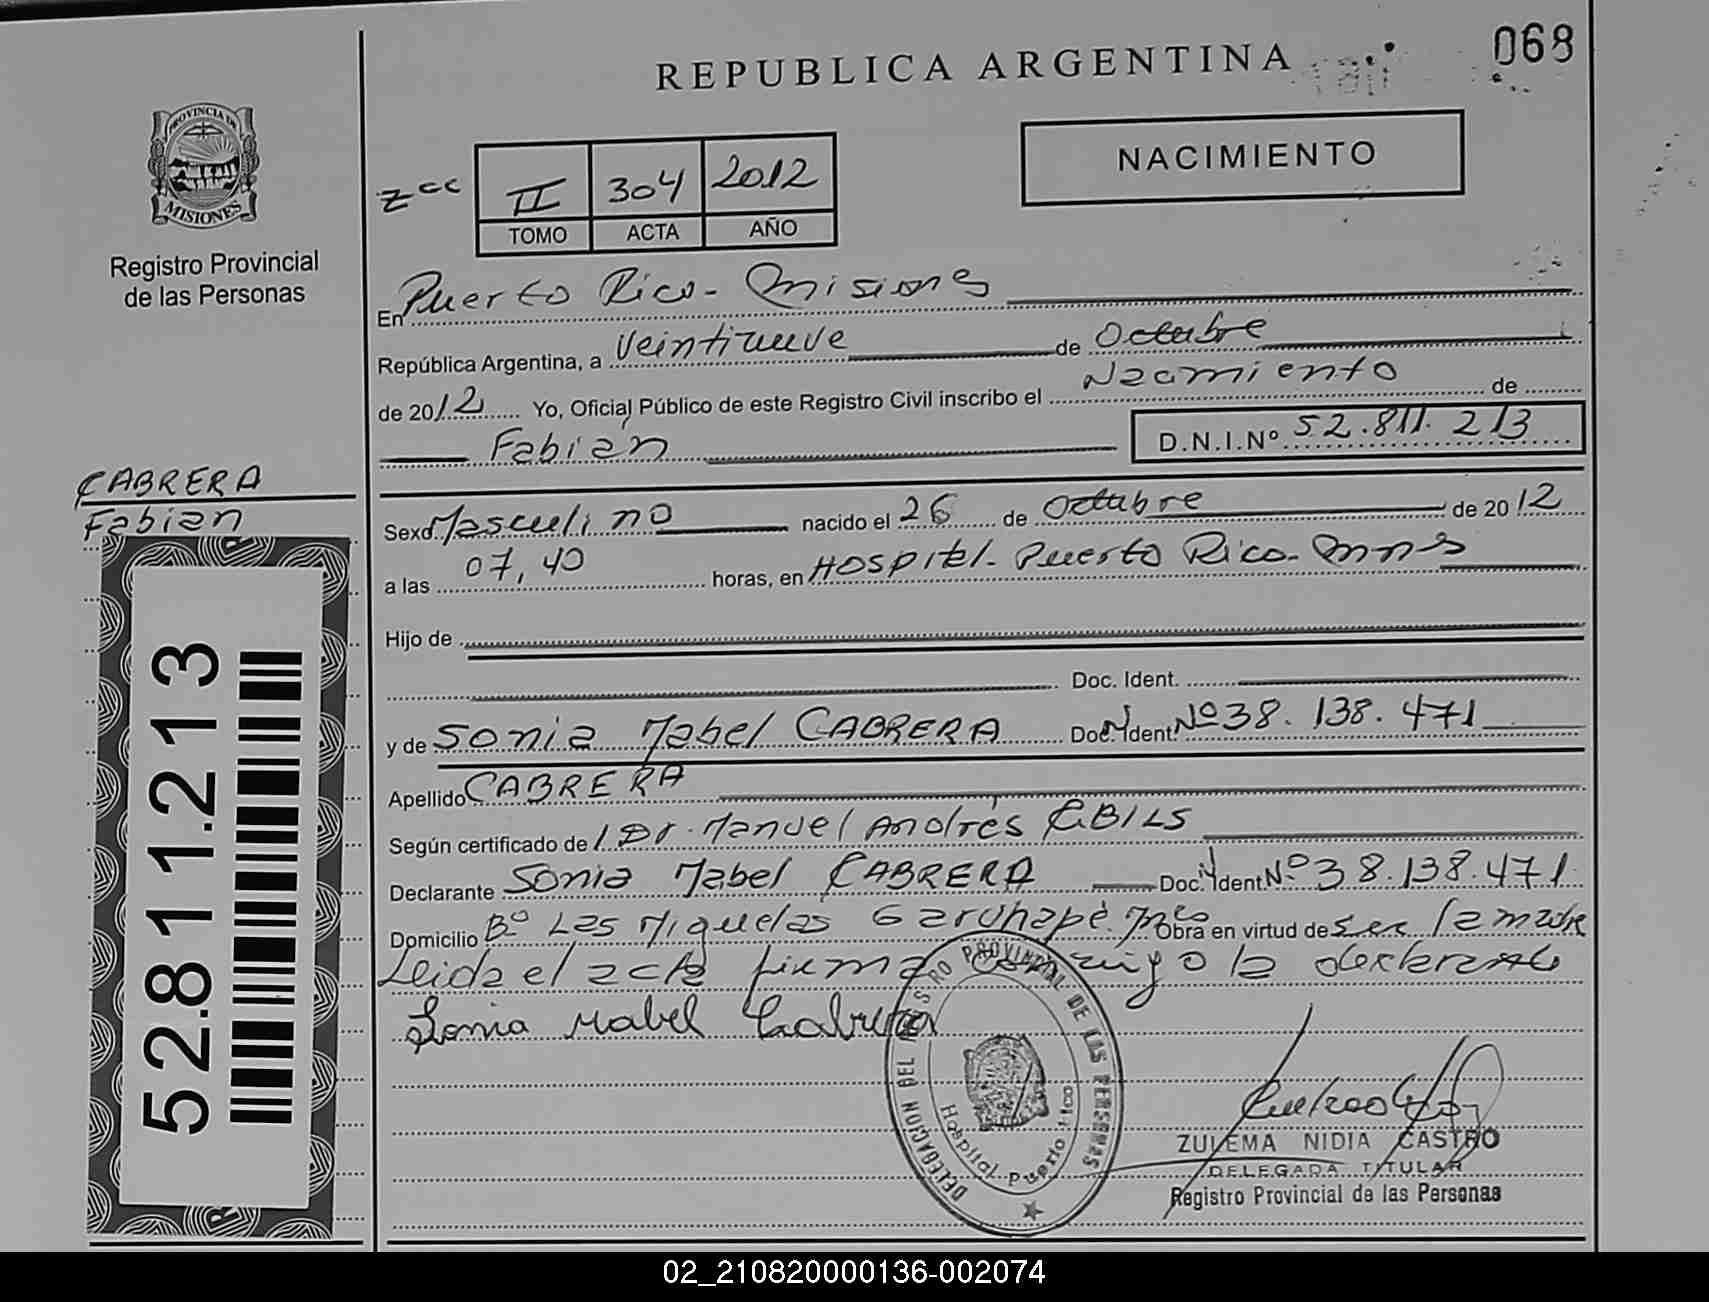 068
REPUBLICA ARGENTINA
NACIMIENTO
PROVINCIA DE
MISIONES
Registro Provincial
de las Personas
zcc II 304 2012
TOMO ACTA AÑO
En Puerto Rico - Misiones
República Argentina, a veintinueve de Octubre
de 2012 Yo, Oficial Público de este Registro Civil inscribo el Nacimiento de
Fabian D.N.I.Nº 52.811.213
CABRERA
Fabian
52.811.213
Sexo Masculino nacido el 26 de Octubre de 2012
a las 07,40 horas, en Hospital - Puerto Rico - Mnes
Hijo de
Doc. Ident.
y de Sonia Mabel CABRERA Doc. Ident. Nº 38.138.471
Apellido CABRERA
Según certificado de l Dr. Manuel Andrés
Declarante Sonia Mabel CABRERA Doc. Ident. Nº 38.138.471
Domicilio Bº Las Miguelas Garuhapé. Obra en virtud de ser la madre
Leida el acta firma conmigo la declarante
Sonia Mabel Cabrera
DELEGACION DEL REGISTRO PROVINCIAL DE LAS PERSONAS
Hospital Puerto Rico
ZULEMA NIDIA CASTRO
DELEGADA TITULAR
Registro Provincial de las Personas
02_210820000136-002074